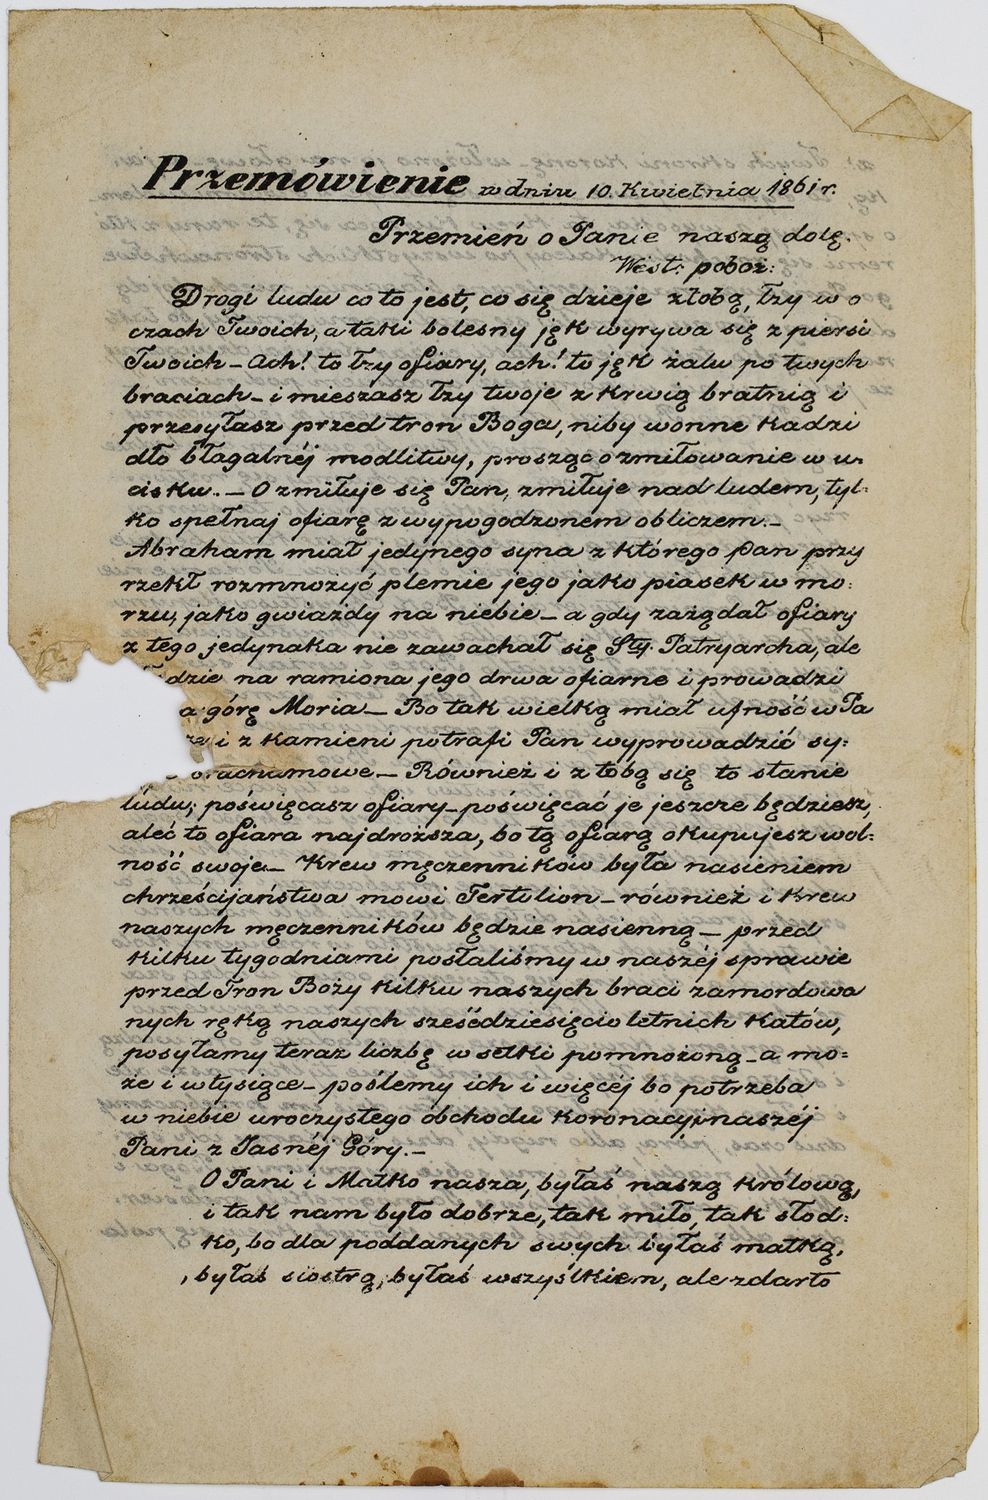 Przemówienie w dniu 10. Kwietnia 1861 r.
Przemień o Panie naszą dolę.
West: poboż:
Drogi ludu co to jest, co się dzieje z tobą, łzy w o
czach Twoich, a taki bolesny jęk wyrywa się z piersi
Twoich – Ach! to łzy ofiary, ach! to jęk żalu po twych
braciach – i mieszasz łzy twoje z krwią bratnią i
przesyłasz przed tron Boga, niby wonne kadzi
dło błagalnéj modlitwy, prosząc o zmiłowanie w u:
cisku. – O zmiłuje się Pan, zmiłuje nad ludem, tyl:
ko spełnaj ofiarę z wypogodzonem obliczem. –
Abraham miał jedynego syna z którego Pan przy
rzekł rozmnożyć plemie jego jako piasek w mo:
rzu, jako gwiazdy na niebie – a gdy zażądał ofiary
z tego jedynaka nie zawachał się Sty. Patryarcha, ale
dzie na ramiona jego drwa ofiarne i prowadzi
a górę Moria – Bo tak wielką miał ufność w Pa
że i z kamieni potrafi Pan wyprowadzić sy:
brachamowe – Również i z tobą się to stanie
ludu; poświęcasz ofiary – poświęcać je jeszcze będziesz,
aleć to ofiara najdroższa, bo tą ofiarą okupujesz wol:
ność swoje – Krew męczenników była nasieniem
chrześcijaństwa mowi Tertulion – również i krew
naszych męczenników będzie nasienną – przed
kilku tygodniami posłaliśmy w naszéj sprawie
przed Tron Boży kilku naszych braci zamordowa
nych ręką naszych sześćdziesięcio letnich katów,
posyłamy teraz liczbę w setki pomnożoną – a mo=
że i w tysiące – poślemy ich i więcéj bo potrzeba
w niebie uroczystego obchodu koronacyi naszéj
Pani z Jasnéj Góry. –
O Pani i Matko nasza, byłaś naszą królową,
i tak nam było dobrze, tak miło, tak słod:
ko, bo dla poddanych swych byłaś matką,
byłaś siostrą, byłaś wszystkiem, ale zdarto